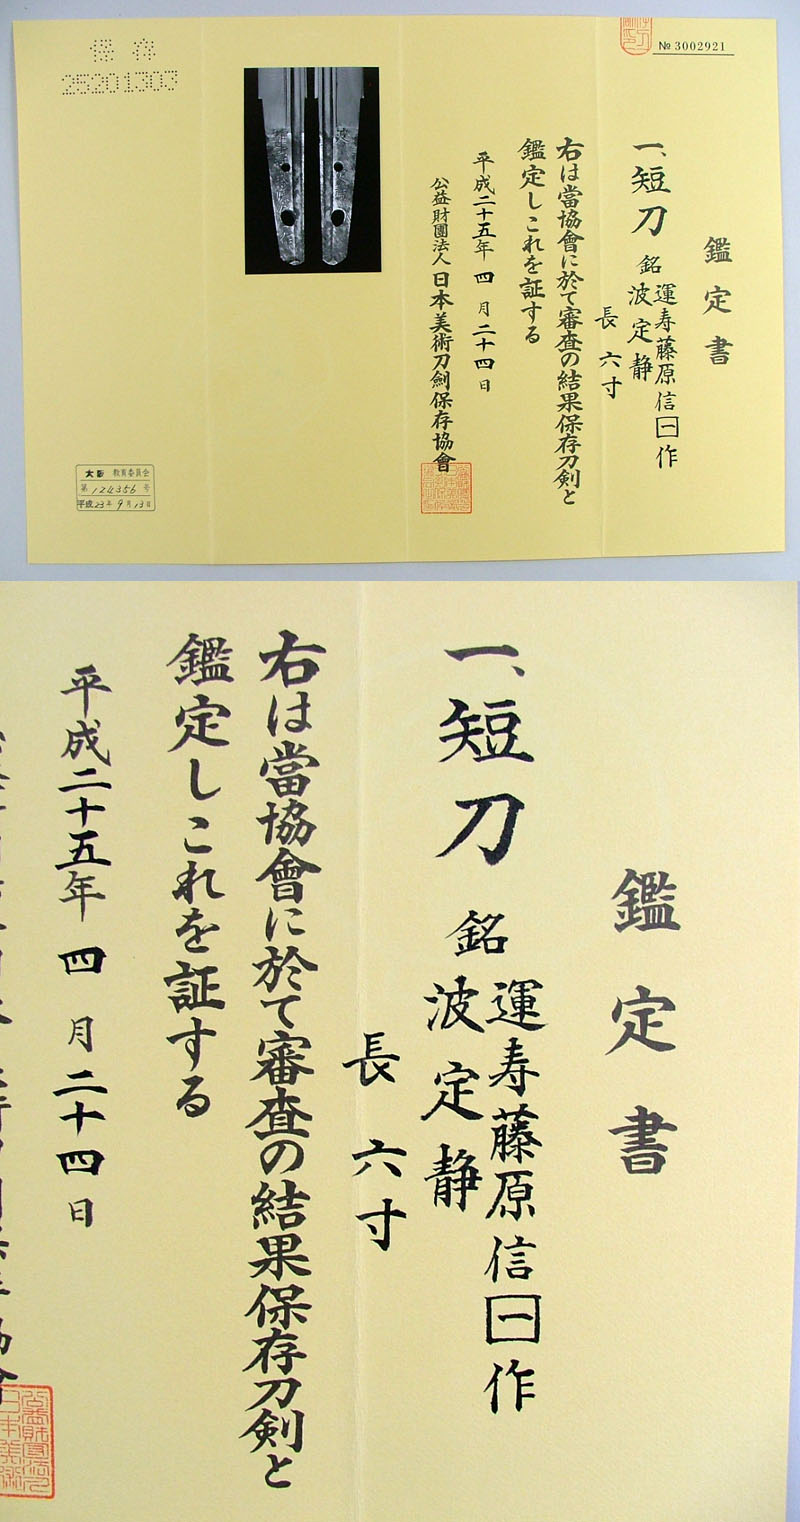 保存
25201303
№ 3002921
鑑定書
一、短刀
銘
運寿藤原信㊀作
波定静
長六寸
右は當協會に於て審査の結果保存刀剣と
鑑定しこれを証する
平成二十五年四月二十四日
公益財團法人日本美術刀剣保存協會
大阪 教育委員会
第124356号
平成23年9月13日
鑑定書
一、短刀
銘
運寿藤原信㊀作
波定静
長六寸
右は當協會に於て審査の結果保存刀剣と
鑑定しこれを証する
平成二十五年四月二十四日